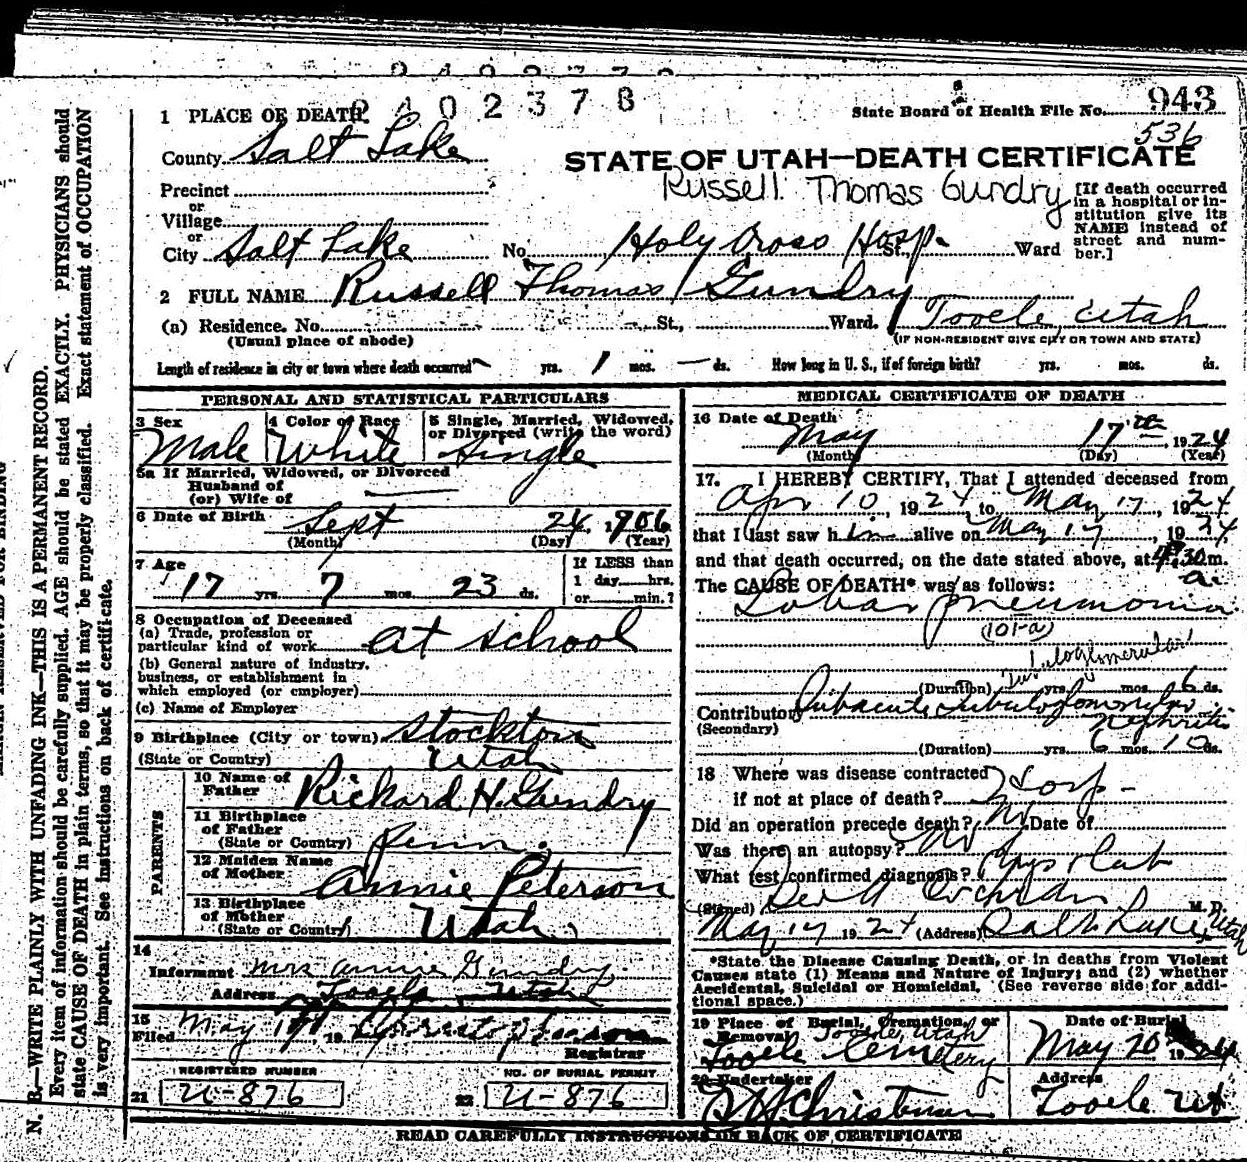 2402378
State Board of Health File No. 943
1 PLACE OF DEATH
536
County Salt Lake
STATE OF UTAH—DEATH CERTIFICATE
Russell Thomas Gundry
Precinct
or
Village
or
City Salt Lake No. Holy Cross Hosp. St., Ward
[If death occurred
in a hospital or in-
stitution give its
NAME instead of
street and num-
ber.]
2 FULL NAME Russell Thomas Gundry
(a) Residence. No. St., Ward. Tooele, Utah
(Usual place of abode) (IF NON-RESIDENT GIVE CITY OR TOWN AND STATE)
Length of residence in city or town where death occurred yrs. 1 mos. — ds. How long in U. S., if of foreign birth? yrs. mos. ds.
PERSONAL AND STATISTICAL PARTICULARS
3 Sex 4 Color or Race 5 Single, Married, Widowed,
or Divorced (write the word)
Male White Single
5a If Married, Widowed, or Divorced
Husband of
(or) Wife of —
6 Date of Birth Sept 24, 1906
(Month) (Day) (Year)
7 Age If LESS than
17 yrs. 7 mos. 23 ds. 1 day.....hrs.
or.....min.?
8 Occupation of Deceased
(a) Trade, profession or
particular kind of work at school
(b) General nature of industry,
business, or establishment in
which employed (or employer)
(c) Name of Employer
9 Birthplace (City or town) Stockton
(State or Country) Utah
PARENTS
10 Name of
Father Richard H. Gundry
11 Birthplace
of Father
(State or Country) Penn.
12 Maiden Name
of Mother Annie Peterson
13 Birthplace
of Mother
(State or Country) Utah
14
Informant Mrs Annie Gundry
Address Tooele Utah
15
Filed May 19
Registrar
REGISTERED NUMBER NO. OF BURIAL PERMIT
21 U-876 22 U-876
MEDICAL CERTIFICATE OF DEATH
16 Date of Death May 17th, 1924
(Month) (Day) (Year)
17. I HEREBY CERTIFY, That I attended deceased from
Apr 10, 1924, to May 17, 1924
that I last saw him alive on May 17, 1924
and that death occurred, on the date stated above, at 4:30 m.
a.
The CAUSE OF DEATH* was as follows:
Lobar pneumonia
(101-a)
Tubuloglomerular
(Duration) yrs. mos. 6 ds.
Contributory Subacute tubuloglomerular
(Secondary) Nephritis
(Duration) yrs. 6 mos. 10 ds.
18 Where was disease contracted
if not at place of death? Hosp-
Did an operation precede death? No Date of
Was there an autopsy? No
What test confirmed diagnosis? Phys & Lab
(Signed) Cochran M. D.
May 17 1924 (Address) Salt Lake, Utah
*State the Disease Causing Death, or in deaths from Violent
Causes state (1) Means and Nature of Injury; and (2) whether
Accidental, Suicidal or Homicidal. (See reverse side for addi-
tional space.)
19 Place of Burial, Cremation, or Date of Burial
Removal Tooele, Utah
Tooele Cemetery May 20 1924
20 Undertaker Address
Tooele Ut
READ CAREFULLY INSTRUCTIONS ON BACK OF CERTIFICATE
N. B.—WRITE PLAINLY WITH UNFADING INK—THIS IS A PERMANENT RECORD.
Every item of information should be carefully supplied. AGE should be stated EXACTLY. PHYSICIANS should
state CAUSE OF DEATH in plain terms, so that it may be properly classified. Exact statement of OCCUPATION
is very important. See instructions on back of certificate.